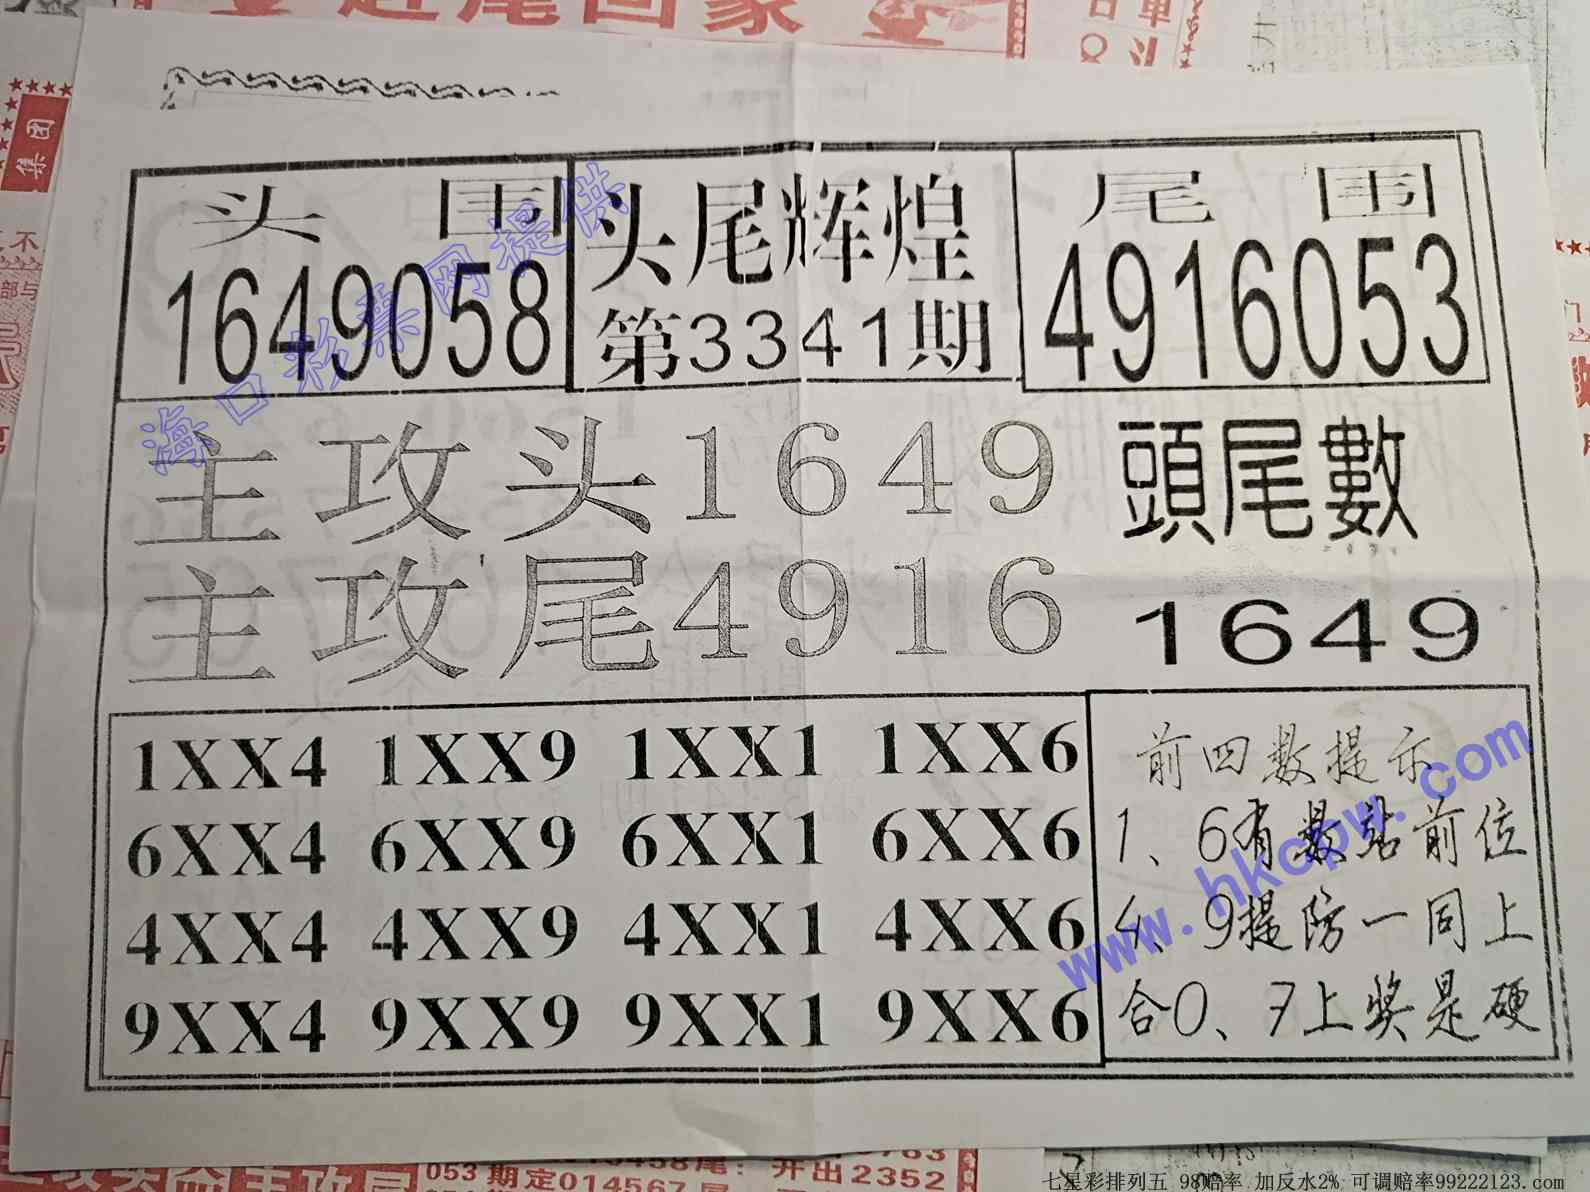 赶尾回家
集团
头围
1649058
头尾辉煌
第3341期
尾围
4916053
主攻头1649
主攻尾4916
頭尾數
1649
1XX4 1XX9 1XX1 1XX6
6XX4 6XX9 6XX1 6XX6
4XX4 4XX9 4XX1 4XX6
9XX4 9XX9 9XX1 9XX6
前四数提示
1、6有数站前位
4、9提防一同上
合0、7上奖是硬
海口彩票网提供
www.hkcpw.com
053期定014567尾
尾：开出2352
七星彩排列五 98赔率 加反水2% 可调赔率99222123.com